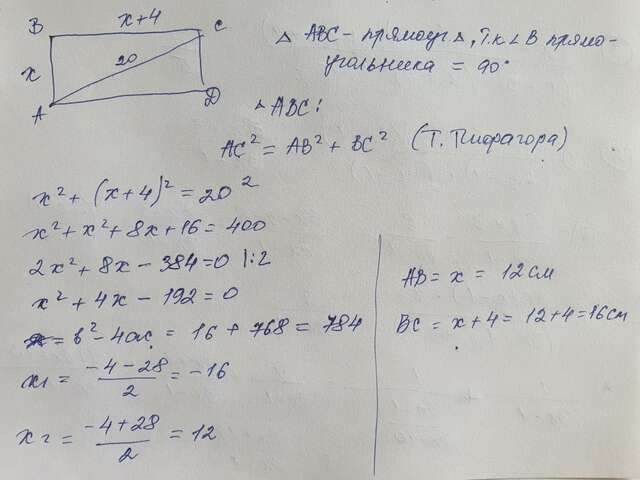 B x+4 C
x 20
A D
△ ABC - прямоуг △, т.к ∠ B прямо-
угольника = 90°
△ ABC:
AC² = AB² + BC² (Т. Пифагора)
x² + (x+4)² = 20²
x² + x² + 8x + 16 = 400
2x² + 8x - 384 = 0 |:2
x² + 4x - 192 = 0
= b² - 4ac = 16 + 768 = 784
x₁ = \frac{-4-28}{2} = -16
x₂ = \frac{-4+28}{2} = 12
AB = x = 12см
BC = x+4 = 12+4 = 16см